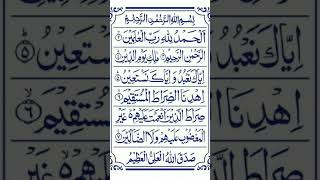 بِسْمِ اللهِ الرَّحْمٰنِ الرَّحِيْمِ
اَلْحَمْدُ لِلّٰهِ رَبِّ الْعٰلَمِيْنَ ۱
الرَّحْمٰنِ الرَّحِيْمِ ۲ مٰلِكِ يَوْمِ الدِّيْنِ ۳
اِيَّاكَ نَعْبُدُ وَ اِيَّاكَ نَسْتَعِيْنُ
اِهْدِنَا الصِّرَاطَ الْمُسْتَقِيْمَ
صِرَاطَ الَّذِيْنَ اَنْعَمْتَ عَلَيْهِمْ غَيْرِ
الْمَغْضُوْبِ عَلَيْهِمْ وَلَا الضَّآلِّيْنَ
صَدَقَ اللهُ الْعَلِيُّ الْعَظِيْمُ